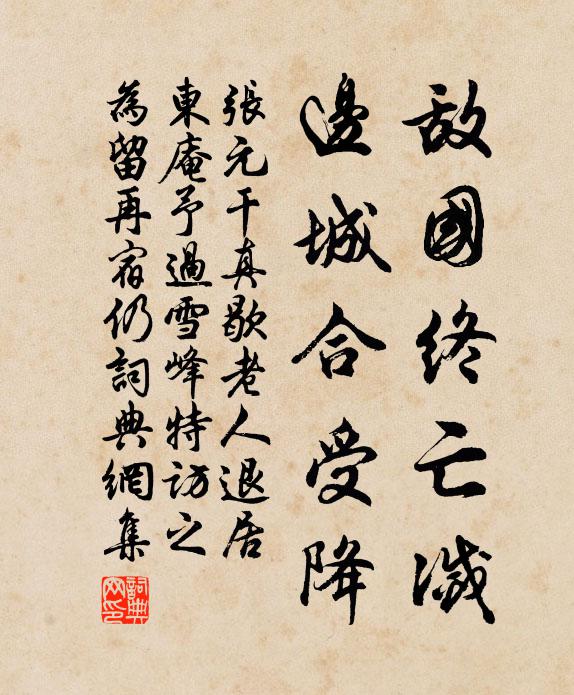 敌國终亡滅
邊城合受降
張元干真歇老人退居
東庵予過雪峰特访之
為留再宿仍詞典網集
詞典网印